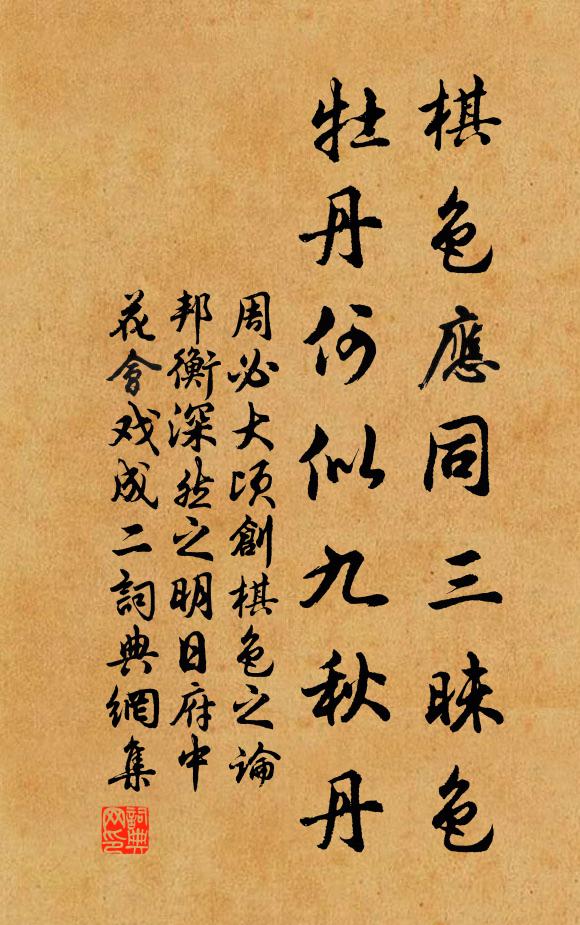 棋色應同三昧色
牡丹何似九秋丹
周必大頃創棋色之論
邦衡深然之明日府中
花會戏成二詞典網集
詞典網印